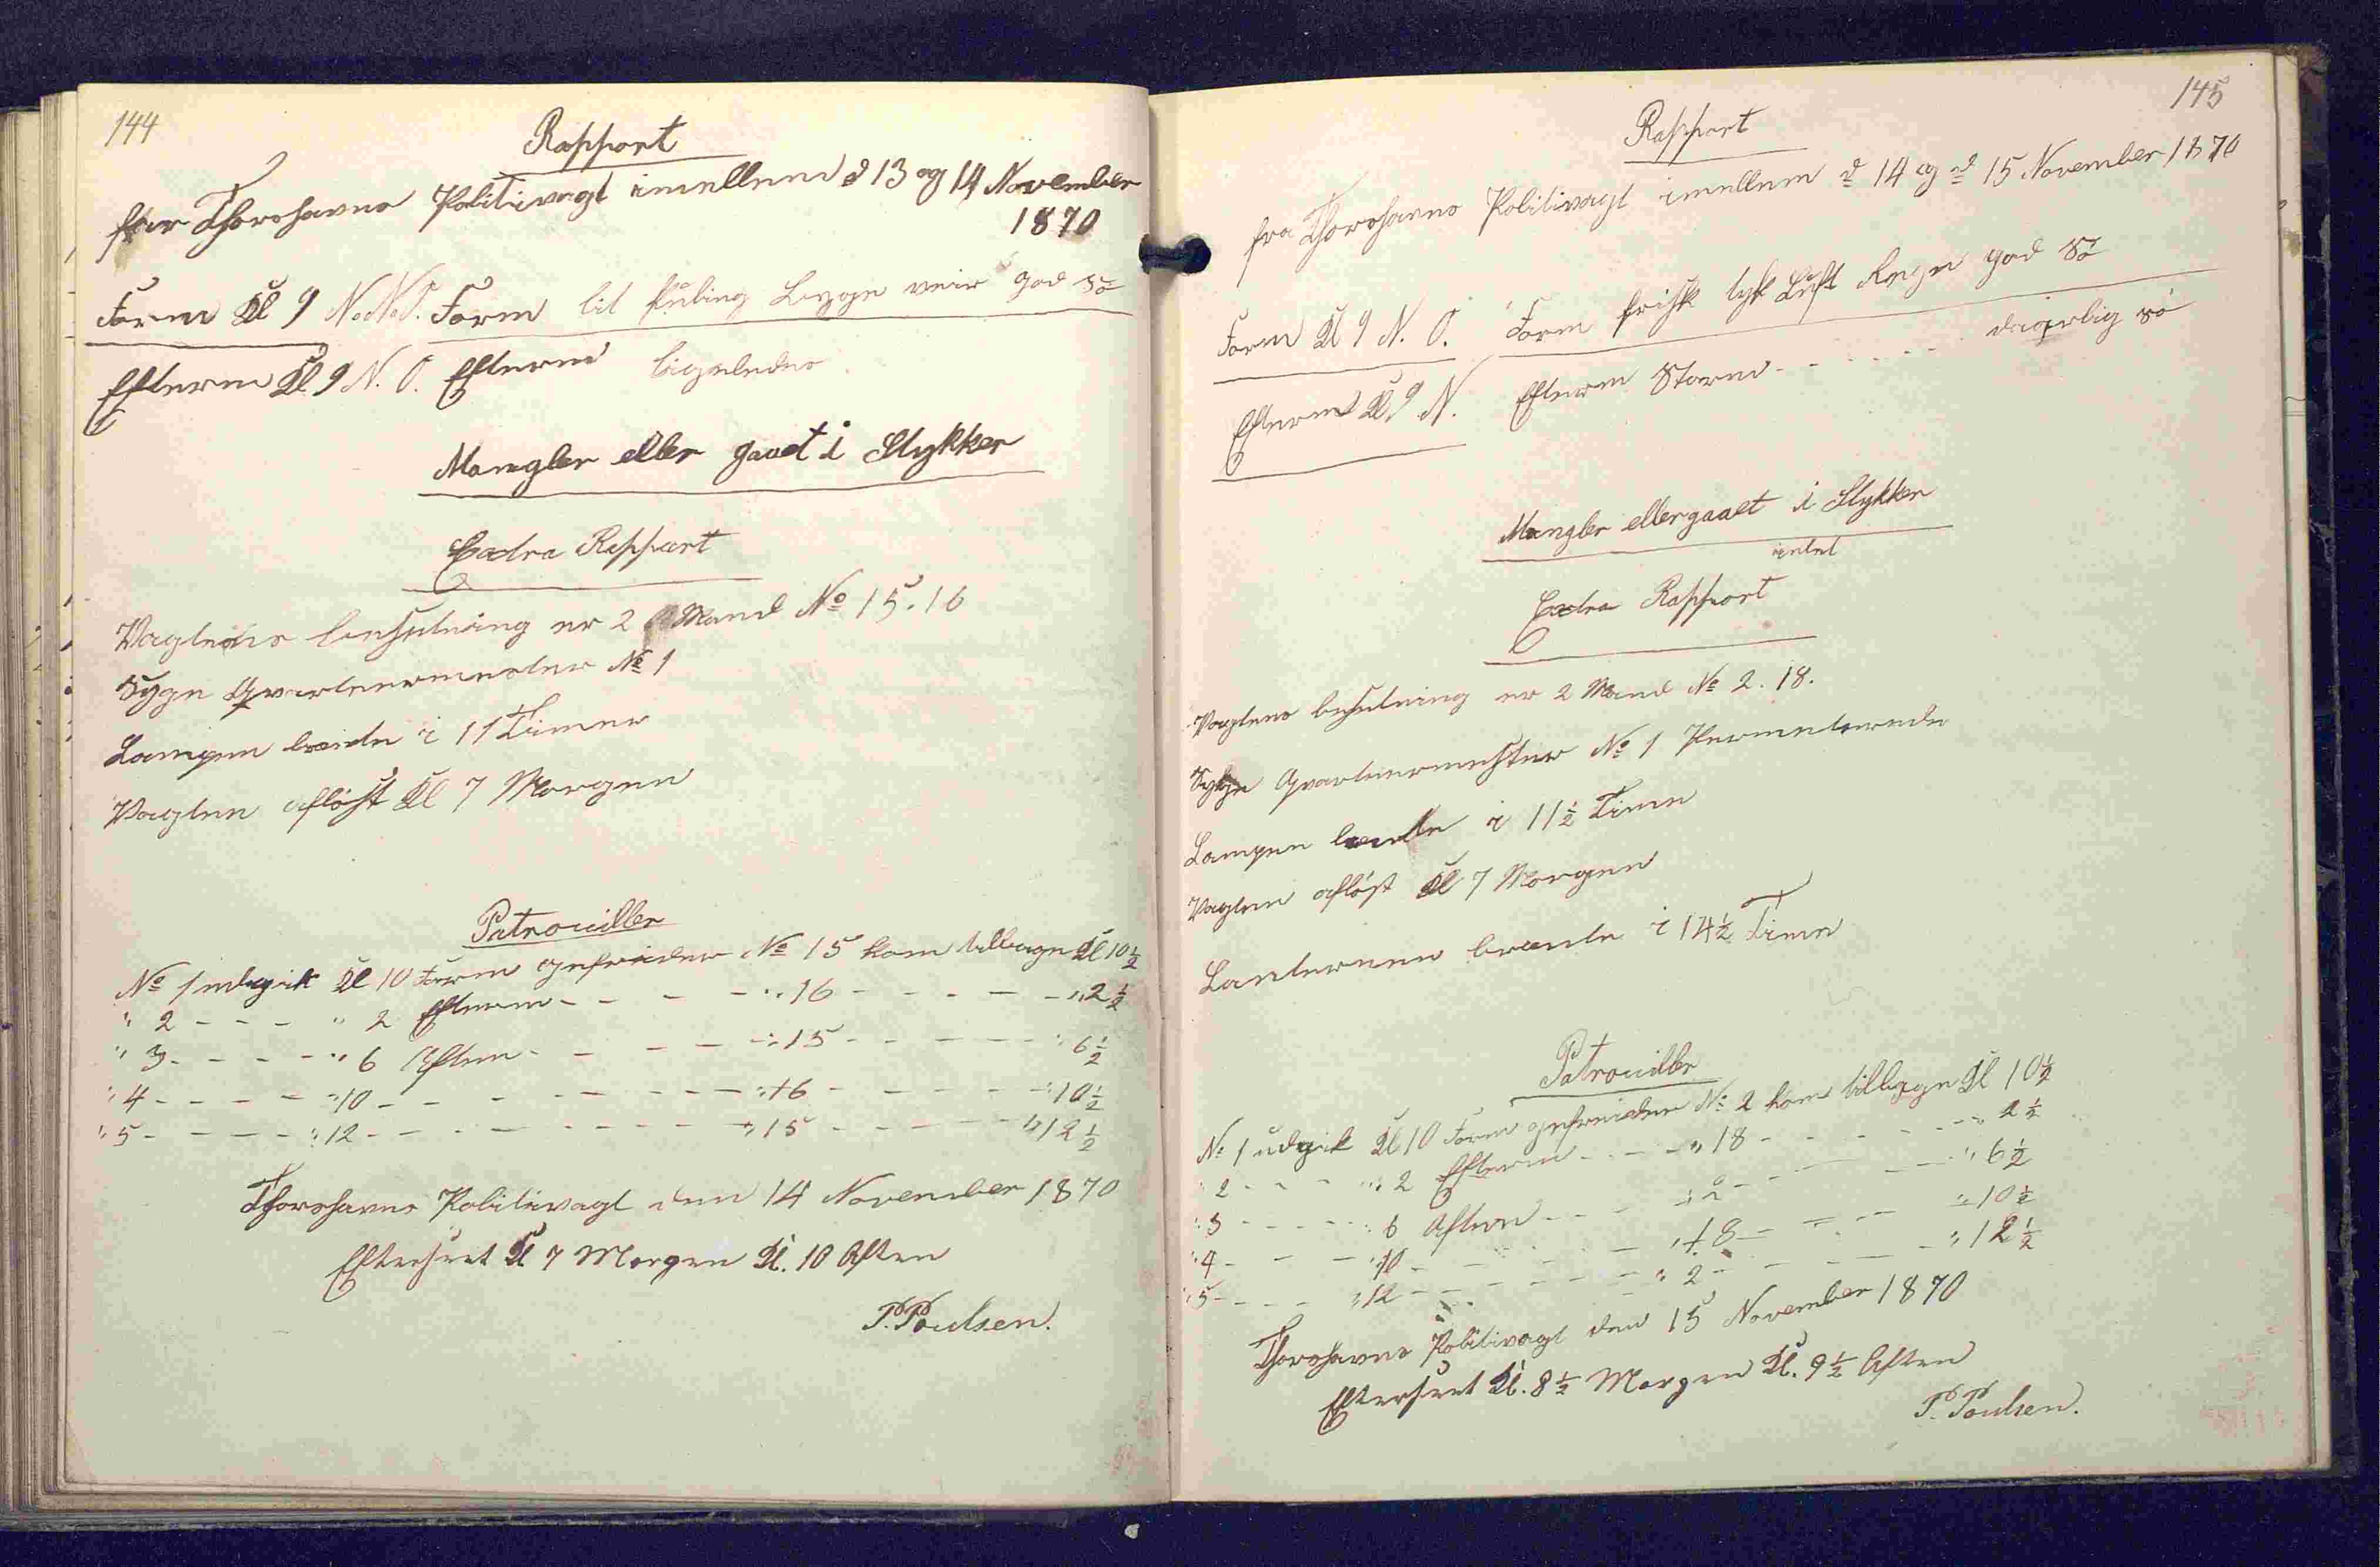 144
Rapport
fra Thorshavns Politivagt imellem d 13 og 14 November
1870
Form Kl 9 N.N.O. Form lit Kuling Bygge veir god Sø
Efterm Kl. 9 N. O. Efterm ligeledes
Mangler eller gaaet i Stykker
Extra Rapport
Vagtens besetning er 2 Mand No 15. 16
Syge Qvarteermester No 1
Lampen brænte i 11 Timer
Vagten afløst Kl 7 Morgen
Patrouiller
No 1 udgik Kl 10 Form gefreider No 15 kom tilbage Kl 10½
" 2 - - - " 2 Efterm - - - - " 16 - - - - - " 2½
" 3 - - - - " 6 Aften - - - - - " 15 - - - - - " 6½
" 4 - - - - " 10 - - - - - - - " 16 - - - - - " 10½
" 5 - - - - " 12 - - - - - - - " 15 - - - - - " 12½
Thorshavns Politivagt den 14 November 1870
Efterseet Kl 7 Morgen Kl. 10 Aften
P. Poulsen.
145
Rapport
fra Thorshavns Politivagt imellem d 14 og d 15 November 1870
Form Kl 9 N. O. Form frisk tyk Luft Regn god Sø
Efterm Kl 9 N. Efterm Storm - - - - - - daarlig sø
Mangler eller gaaet i Stykker
intet
Extra Rapport
Vagtens besetning er 2 Mand No 2. 18.
Syge Qvarteermester No 1 Permeterede
Lampen brænte i 11½ Time
Vagten afløst Kl 7 Morgen
Lanternen brænte i 14½ Time
Patrouiller
No 1 udgik Kl 10 Form gefreider No 2 kom tilbage Kl 10½
" 2 - - - - " 2 Efterm - - - - " 18 - - - - - - " 2½
" 3 - - - - - " 6 Aften - - - - " 2 - - - - - " 6½
" 4 - - - " 10 - - - - - " 18 - - - - " 10½
" 5 - - - - " 12 - - - - - - " 2 - - - - - " 12½
Thorshavns Politivagt den 15 November 1870
Efterseet Kl. 8½ Morgen Kl. 9½ Aften
P. Poulsen.